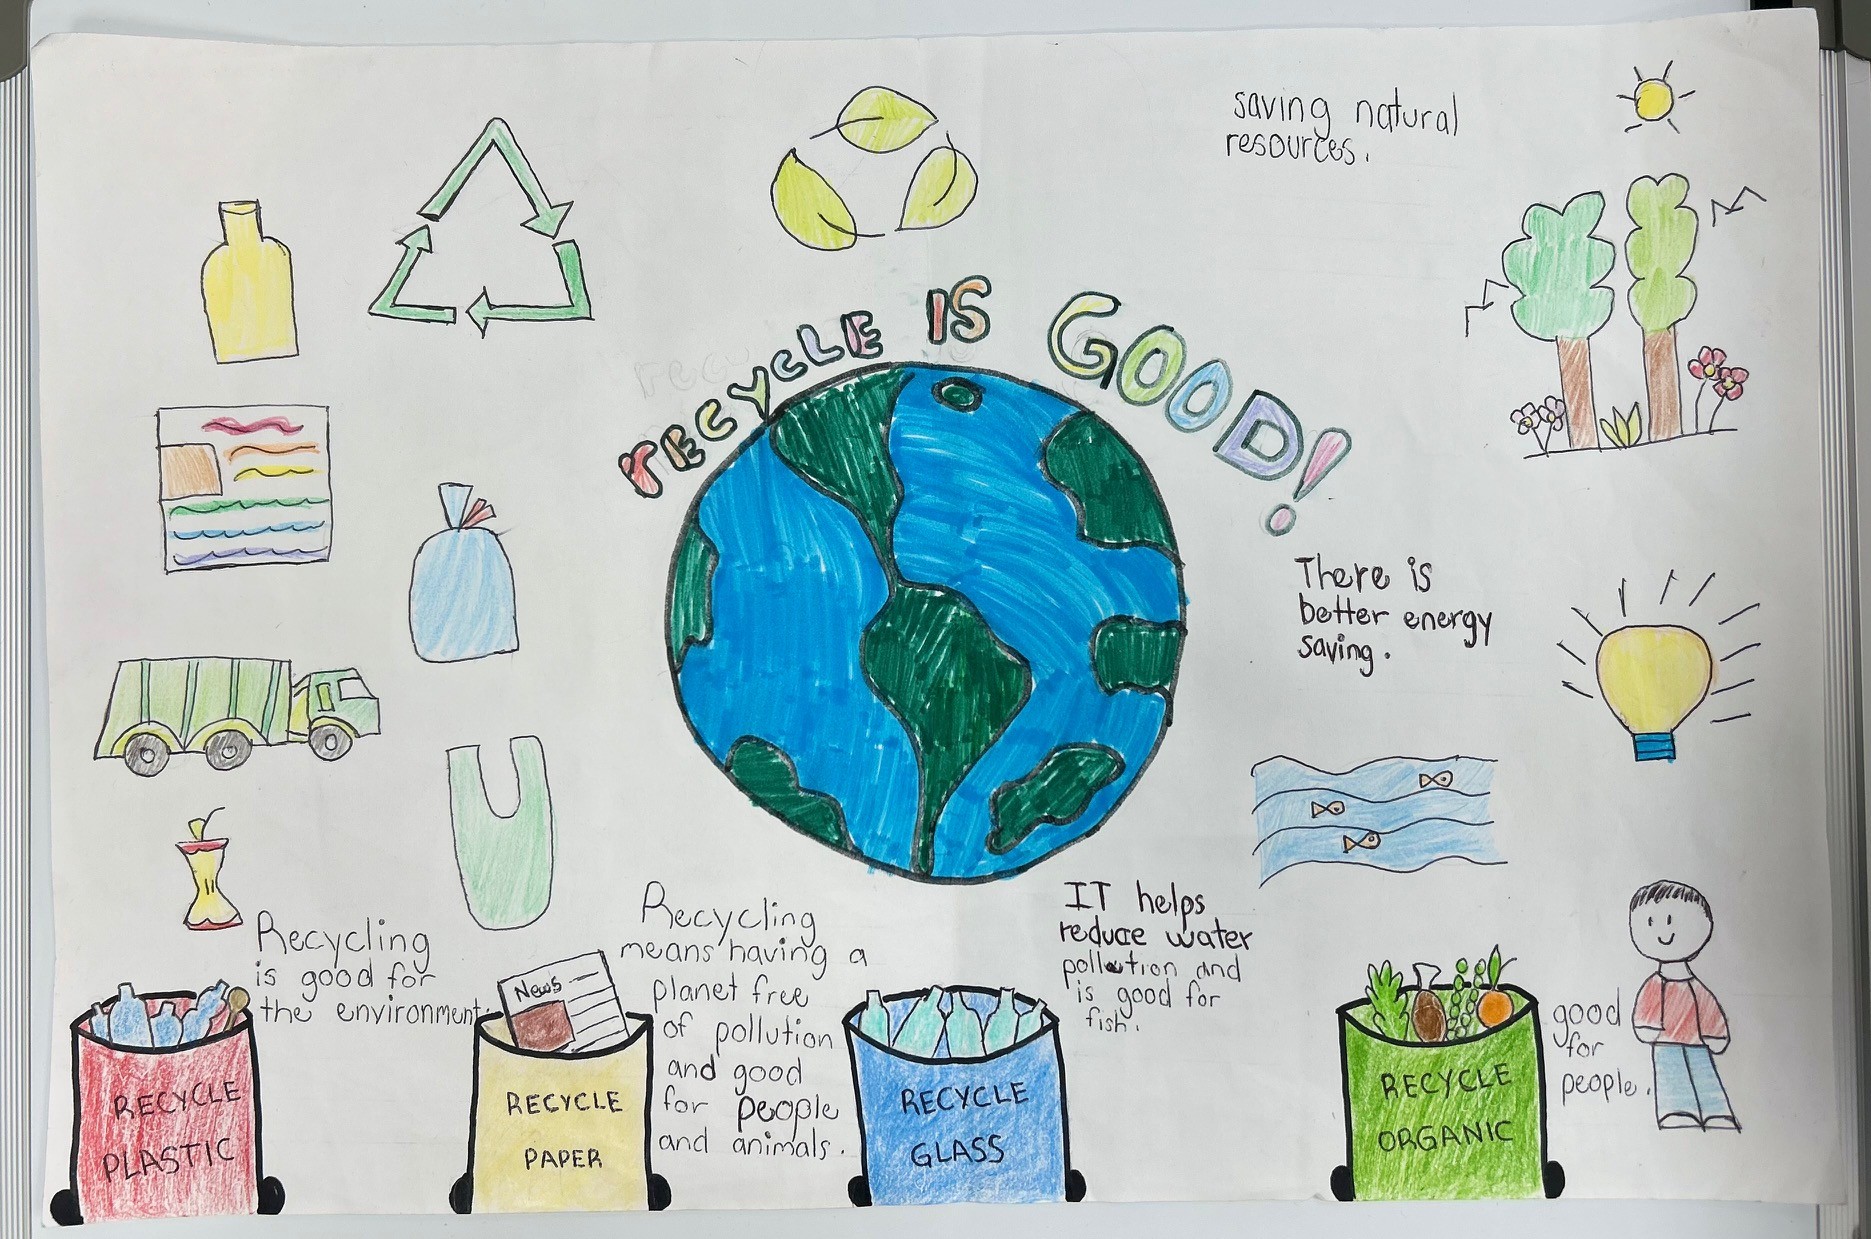 saving natural
resources.
rECYcLE IS GOOD!
There is
better energy
saving.
Recycling
is good for
the environment.
Recycling
means having a
planet free
of pollution
and good
for people
and animals.
IT helps
reduce water
pollution and
is good for
fish.
good
for
people.
News
RECYCLE
PLASTIC
RECYCLE
PAPER
RECYCLE
GLASS
RECYCLE
ORGANIC